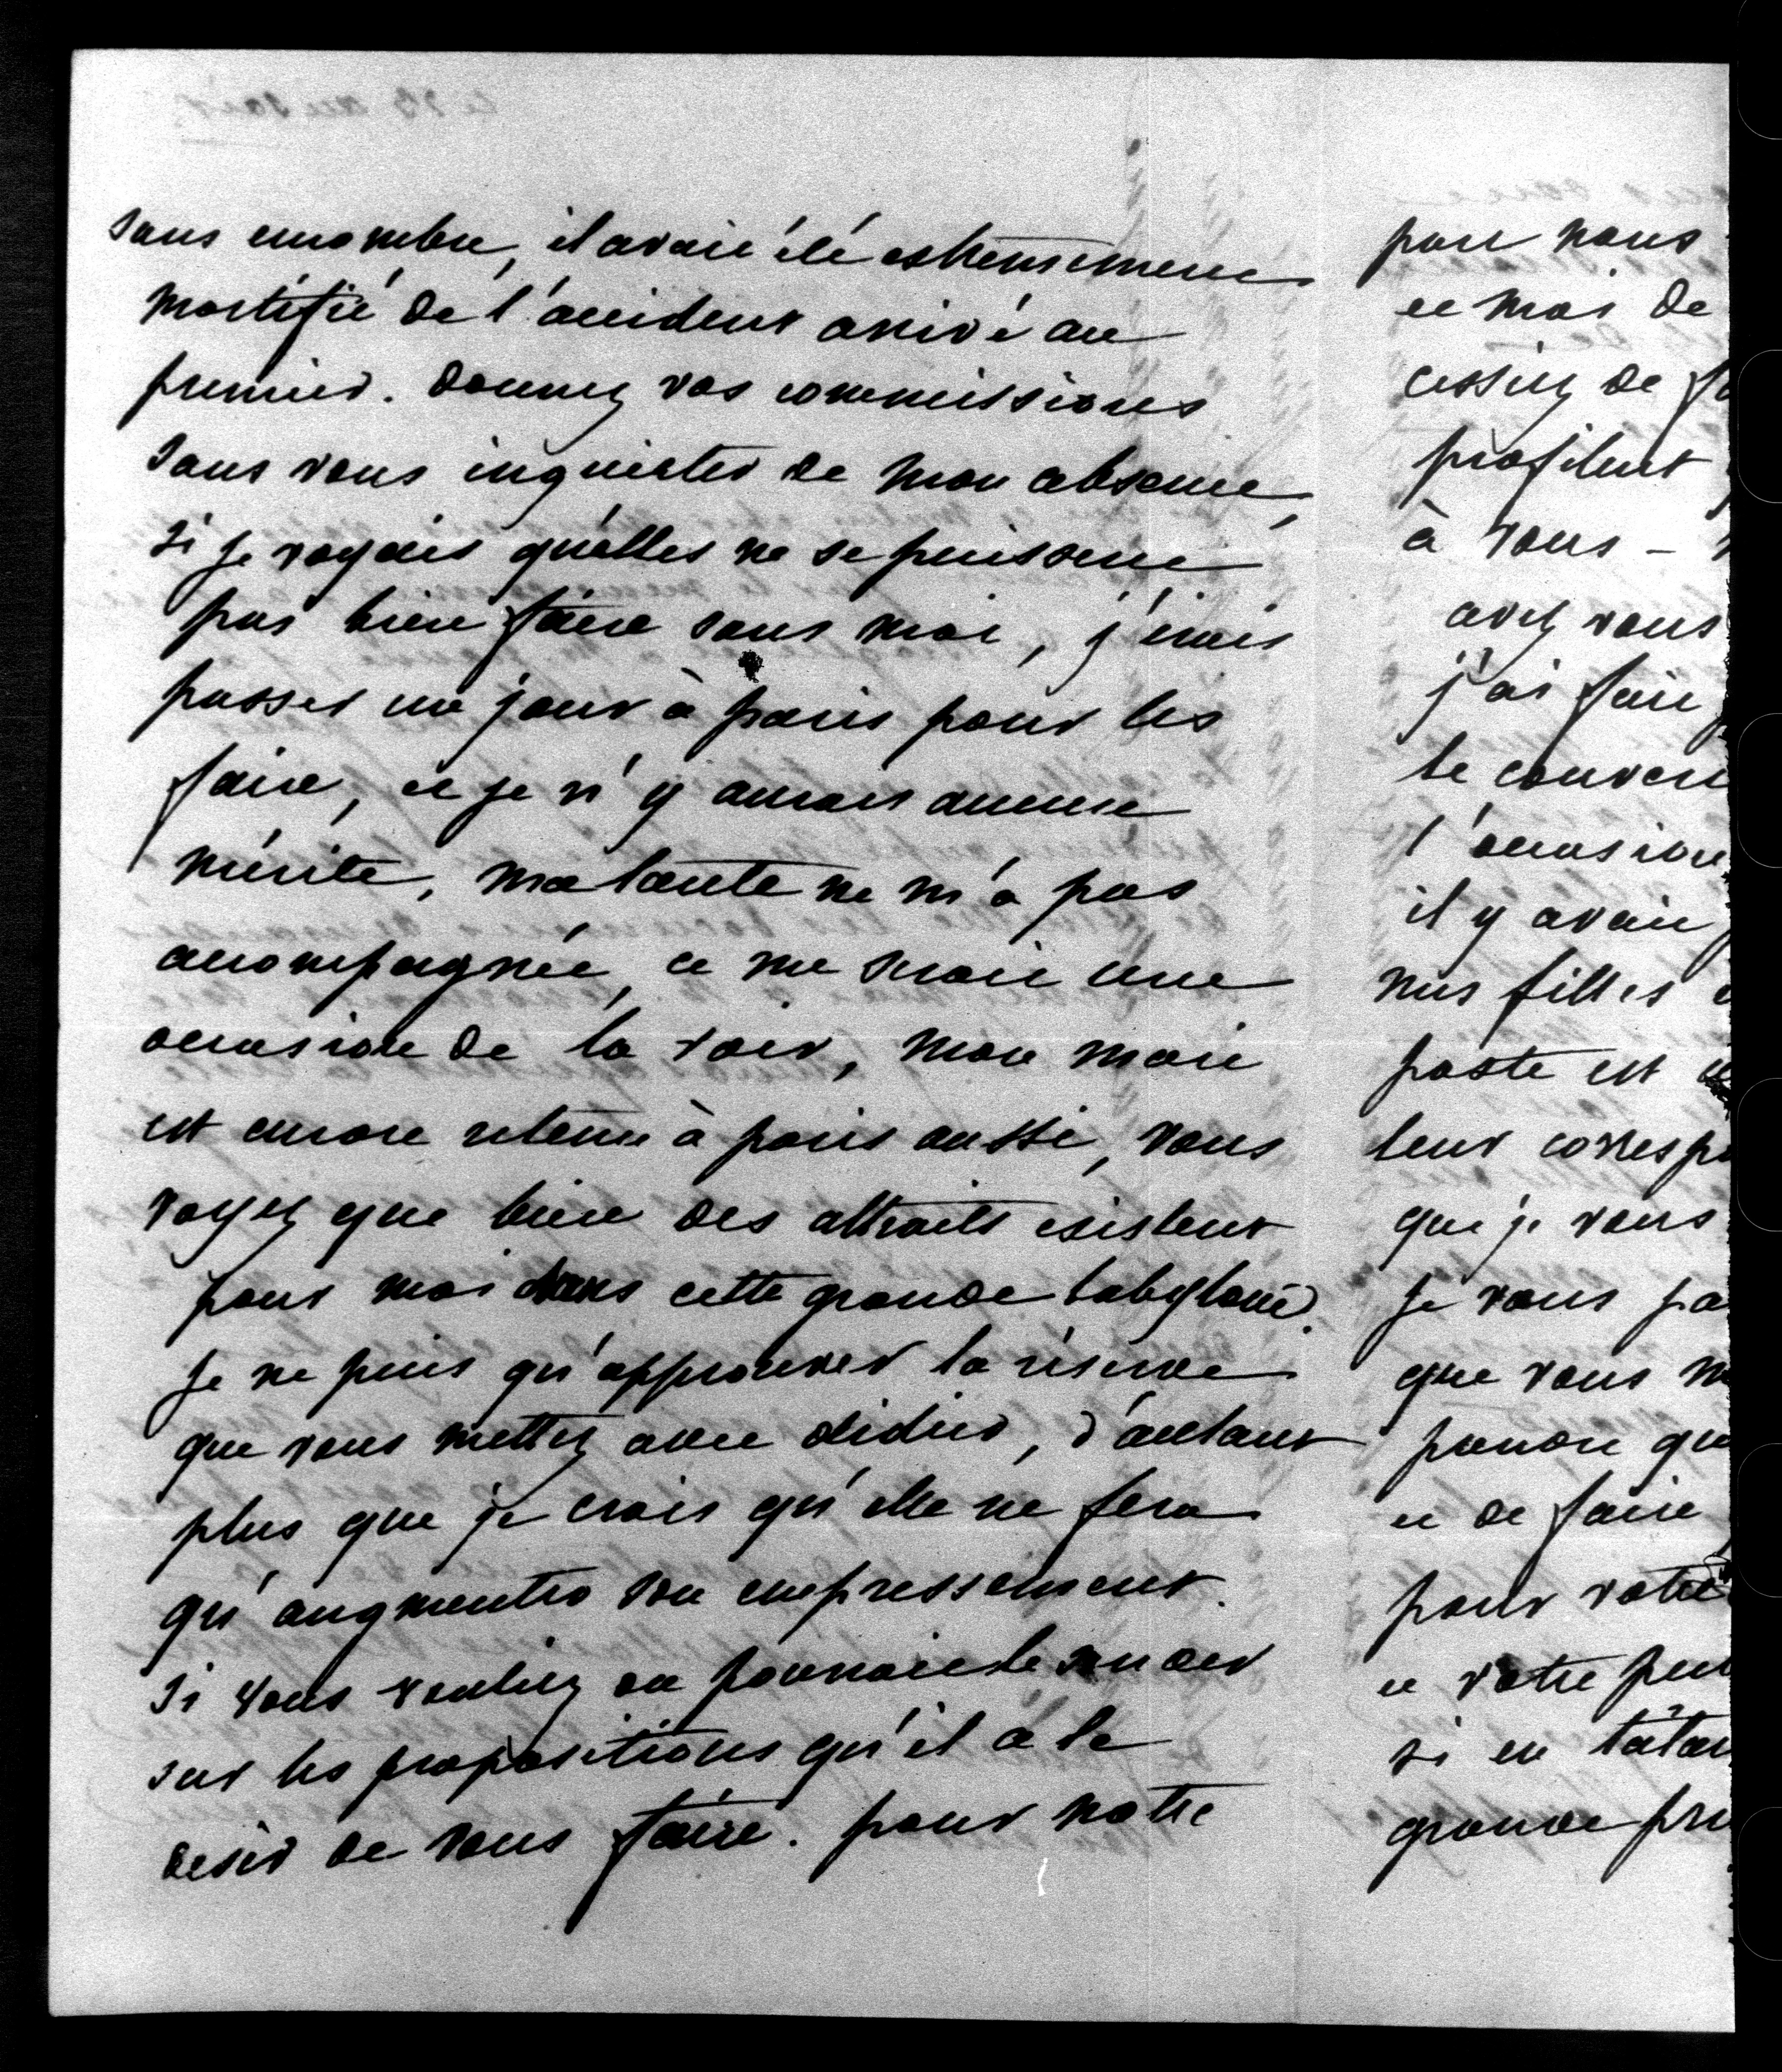 sans encombre, il avait été extremement
mortifié de l'accident arrivé au
premier. donnez vos commissions
sans vous inquieter de mon absence,
si je voyais qu'elles ne se puissent
pas bien faire sans moi, j'irais
passer un jour à paris pour les
faire, et je n'y aurais aucun
mérite, ma tante ne m'a pas
accompagnée, ce me serait une
occasion de la voir, mon mari
est encore retenu à paris aussi, vous
voyez que bien des attraits existent
pour moi dans cette grande babylone.
je ne puis qu'approuver la réserve
que vous mettez avec didier, d'autant
plus que je crois qu'elle ne fera
qu'augmenter son empressement.
si vous vouliez on pourrait le sonder
sur les propositions qu'il a le
desir de vous faire. pour notre
part nous
et moi de
cessiez de
profitent
à vous —
avez vous
j'ai fait
le couvent
l'occasion
il y avait
nos filles
poste est
leur corresp
que je vous
je vous pa
que vous m
prendre qu
et de faire
pour votre
et votre peu
si en tatan
grande pru